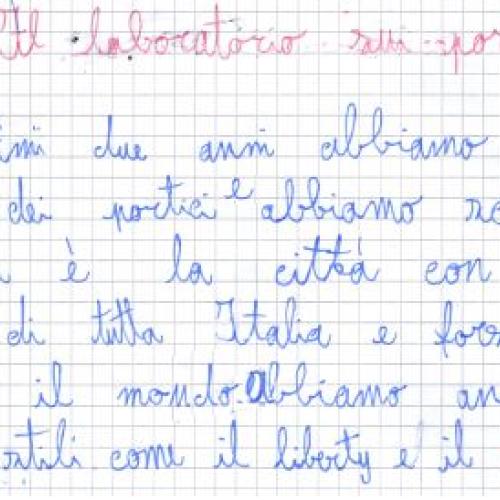 Il laboratorio sui por
imi due anni abbiamo
dei portici e abbiamo sc
a è la città con
di tutta Italia e fors
il mondo. abbiamo an
stili come il liberty e il